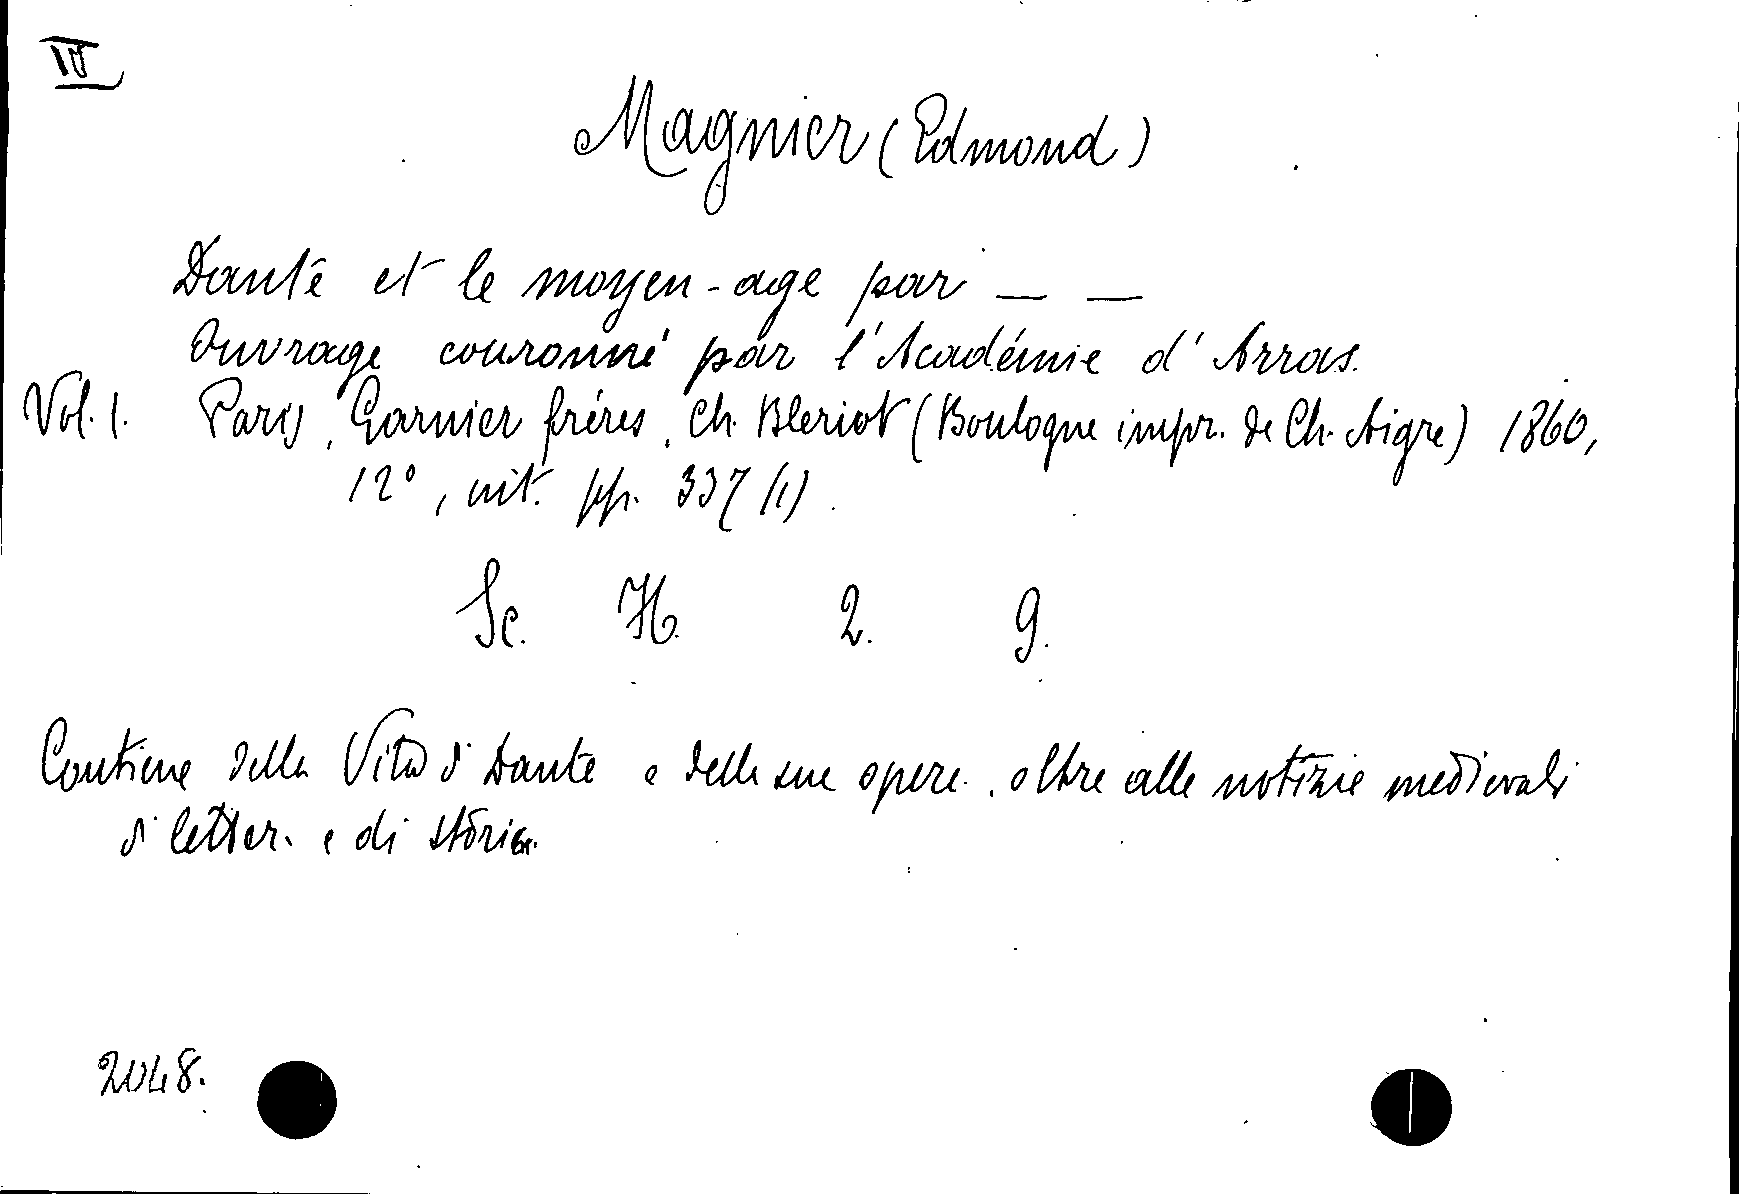 IV
Magnier (Edmond)
Dante et le moyen-age par — —
Ouvrage couronné par l'Académie d'Arras.
Vol. 1. Paris, Garnier fréres, Ch. Bleriot (Boulogne impr. de Ch. Aigre) 1860,
12°, cit. pp. 337 (1).
Sc. H. 2. 9.
Contiene della Vita di Dante e delle sue opere, oltre alle notizie medievali
di letter. e di storia.
2048.